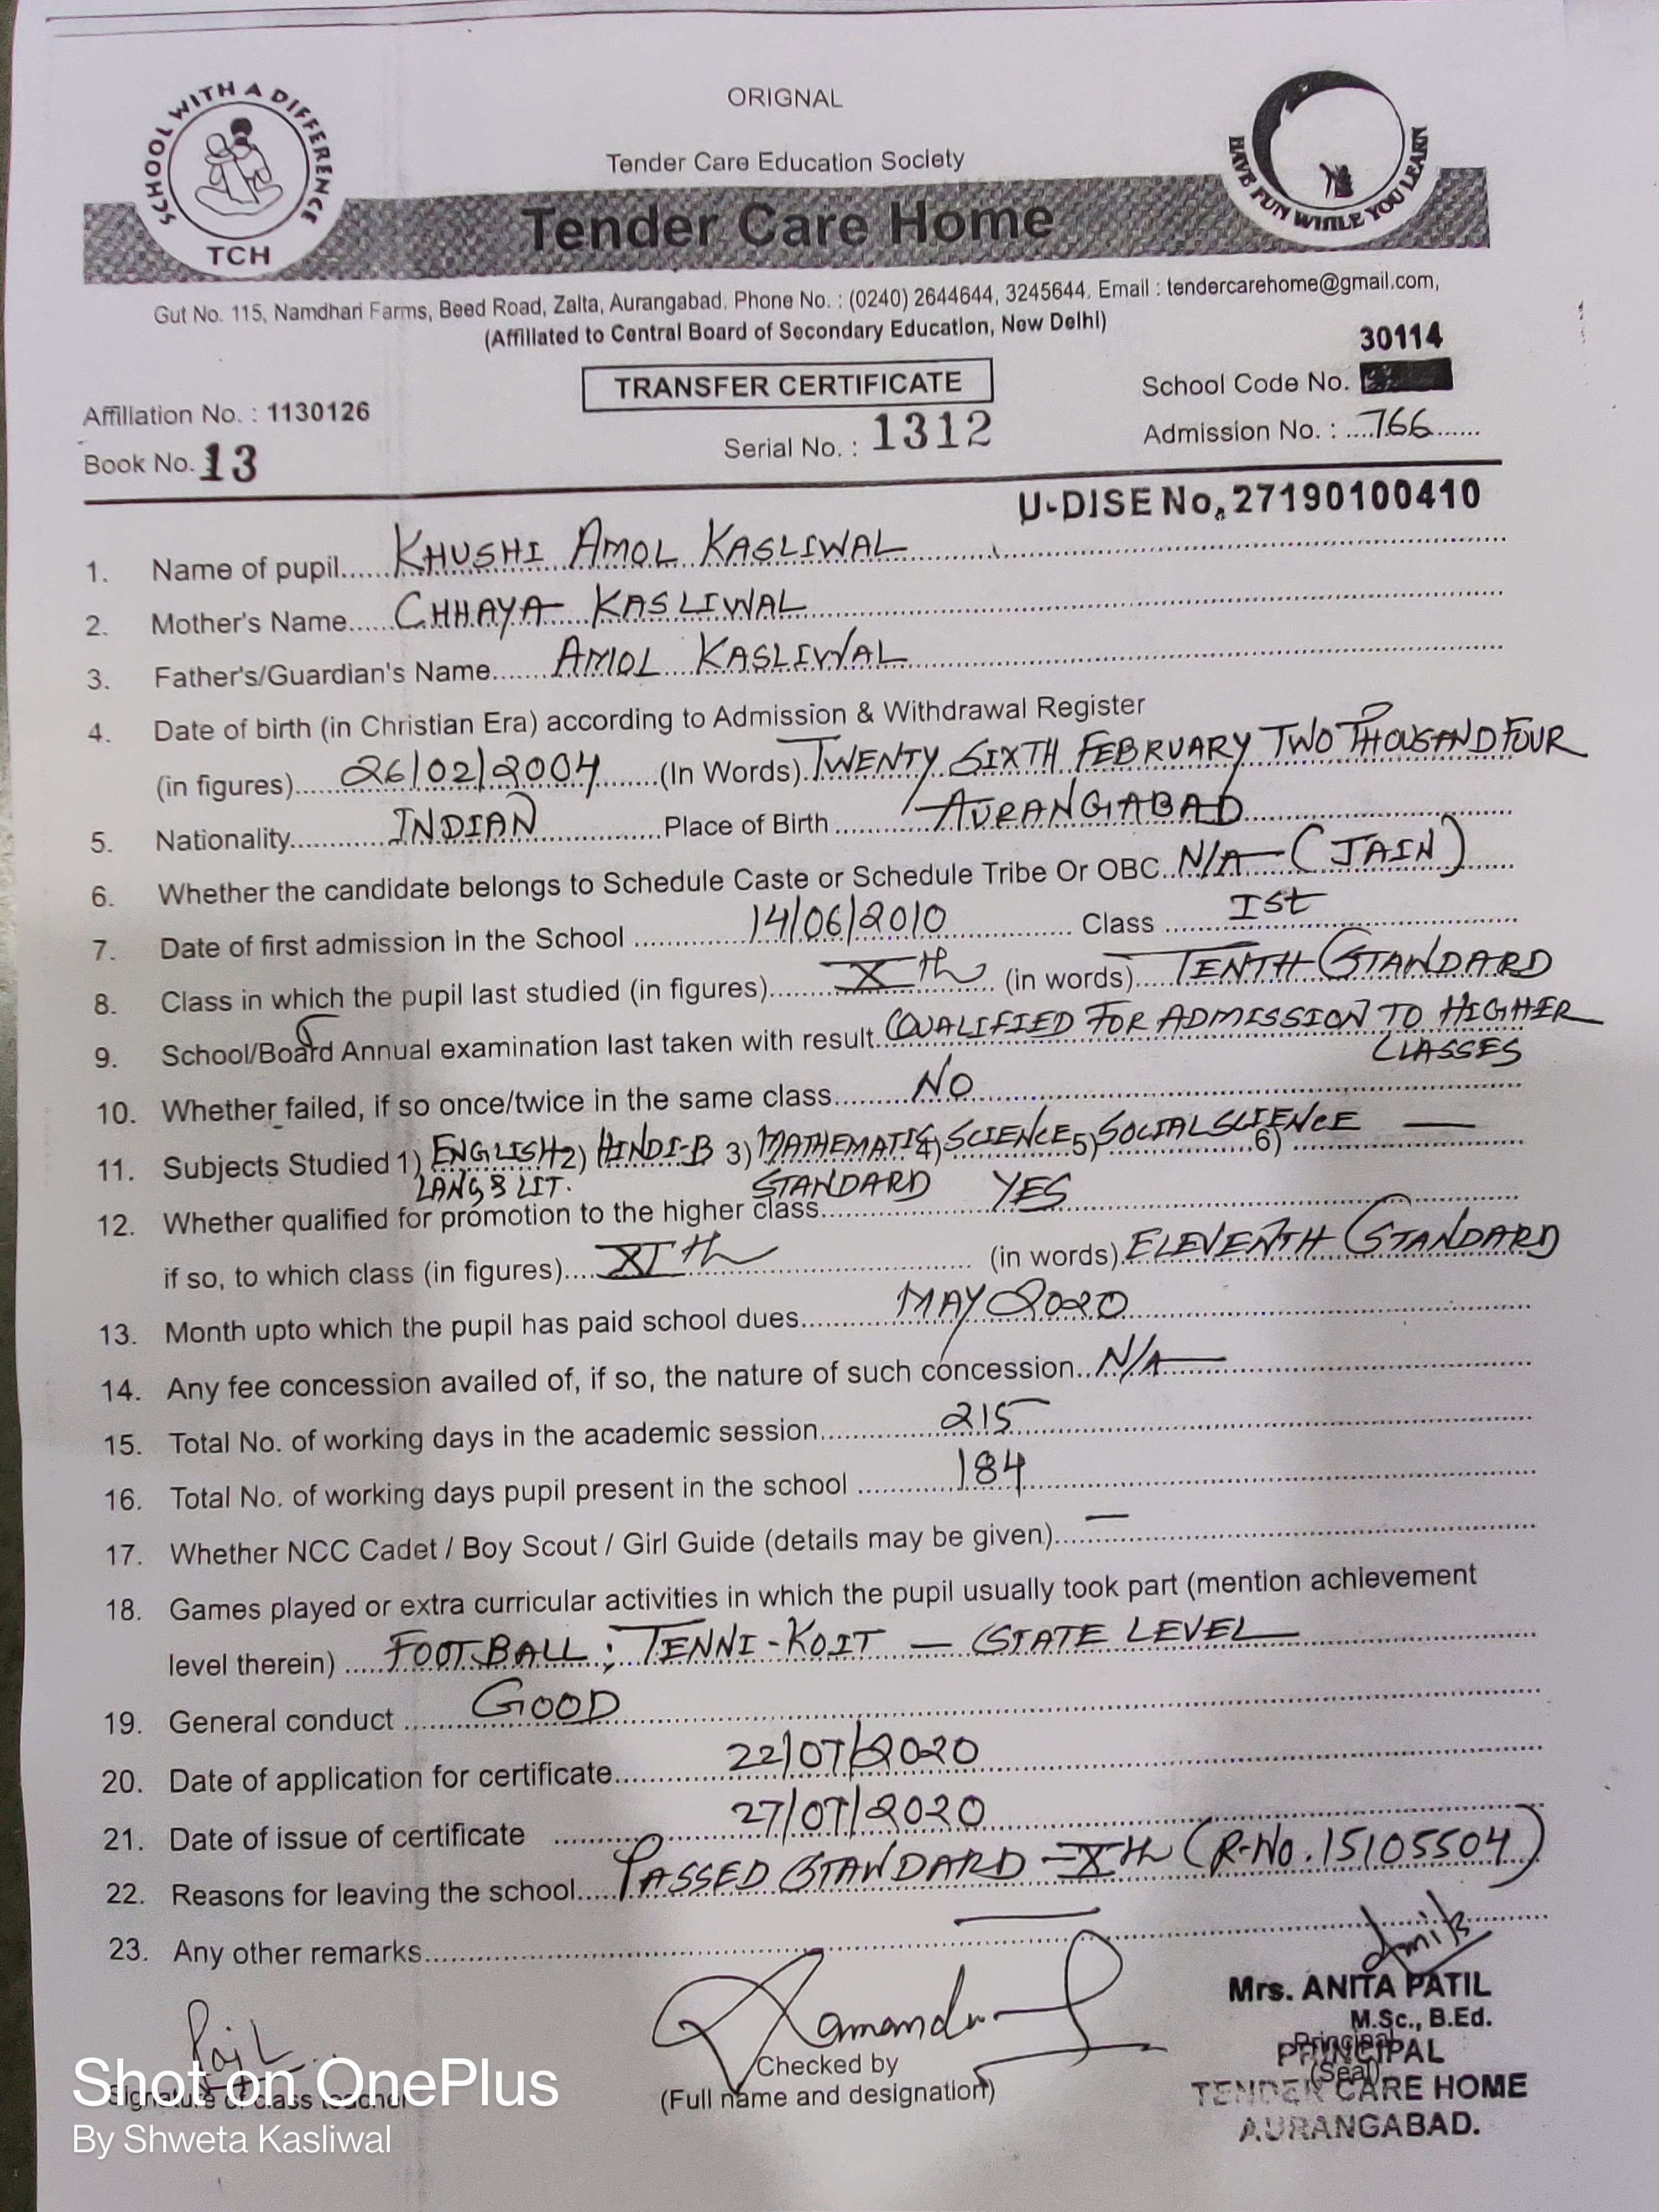 ORIGNAL
SCHOOL WITH A DIFFERENCE
TCH
Tender Care Education Society
Tender Care Home
HAVE FUN WHILE YOU LEARN
Gut No. 115, Namdhari Farms, Beed Road, Zalta, Aurangabad. Phone No. : (0240) 2644644, 3245644. Email : tendercarehome@gmail.com,
(Affiliated to Central Board of Secondary Education, New Delhi)
30114
TRANSFER CERTIFICATE
School Code No.
Affiliation No. : 1130126
Serial No. : 1312
Admission No. : 766
Book No. 13
U-DISE No. 27190100410
1. Name of pupil KHUSHI AMOL KASLIWAL
2. Mother's Name CHHAYA KASLIWAL
3. Father's/Guardian's Name AMOL KASLIWAL
4. Date of birth (in Christian Era) according to Admission & Withdrawal Register
(in figures) 26/02/2004 (In Words) TWENTY SIXTH FEBRUARY TWO THOUSAND FOUR
5. Nationality INDIAN Place of Birth AURANGABAD
6. Whether the candidate belongs to Schedule Caste or Schedule Tribe Or OBC N/A (JAIN)
7. Date of first admission in the School 14/06/2010 Class Ist
8. Class in which the pupil last studied (in figures) Xth (in words) TENTH STANDARD
9. School/Board Annual examination last taken with result QUALIFIED FOR ADMISSION TO HIGHER
CLASSES
10. Whether failed, if so once/twice in the same class NO
11. Subjects Studied 1) ENGLISH 2) HINDI-B 3) MATHEMATICS 4) SCIENCE 5) SOCIAL SCIENCE 6) —
LANG & LIT. STANDARD
12. Whether qualified for promotion to the higher class YES
if so, to which class (in figures) XIth (in words) ELEVENTH STANDARD
13. Month upto which the pupil has paid school dues MAY 2020
14. Any fee concession availed of, if so, the nature of such concession N/A
15. Total No. of working days in the academic session 215
16. Total No. of working days pupil present in the school 184
17. Whether NCC Cadet / Boy Scout / Girl Guide (details may be given) —
18. Games played or extra curricular activities in which the pupil usually took part (mention achievement
level therein) FOOTBALL; TENNI-KOIT — STATE LEVEL
19. General conduct GOOD
20. Date of application for certificate 22/07/2020
21. Date of issue of certificate 27/07/2020
22. Reasons for leaving the school PASSED STANDARD-Xth (R-No. 15105504)
23. Any other remarks —
Mrs. ANITA PATIL
M.Sc., B.Ed.
Principal
PRINCIPAL
(Seal)
TENDER CARE HOME
AURANGABAD.
Checked by
(Full name and designation)
Signature of class teacher
Shot on OnePlus
By Shweta Kasliwal